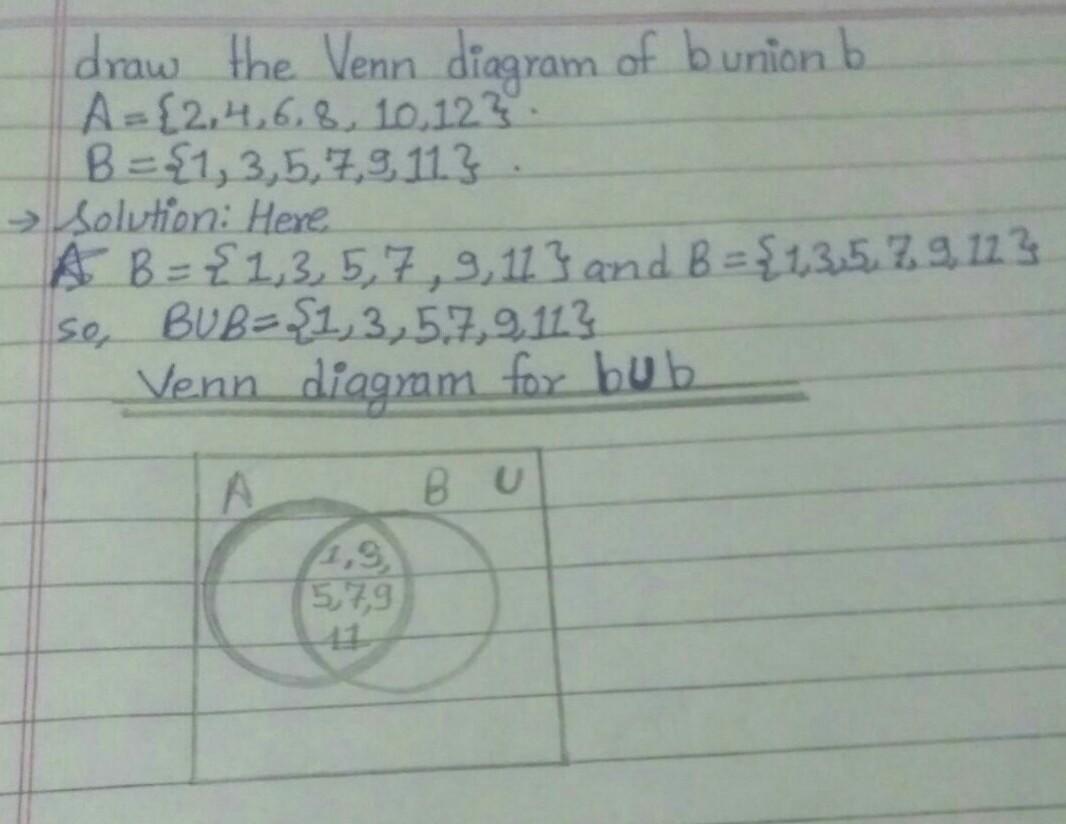 draw the Venn diagram of b union b
A = {2,4,6,8, 10,12}.
B = {1, 3,5,7,9,11}.
→ Solution: Here
B = {1,3, 5,7, 9,11} and B = {1,3,5,7,9,11}
so, BUB = {1,3,5,7,9,11}
Venn diagram for bUb
A B U
1,3,
5,7,9
11